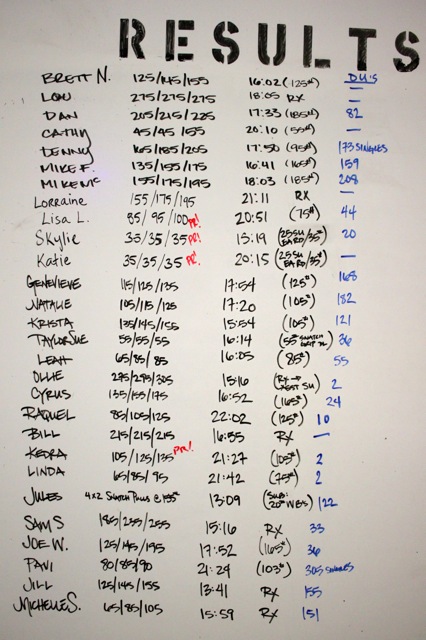 RESULTS
DU'S
BRETT N. 125/145/155 16:02 (125#) —
LOU 275/275/275 18:05 RX —
DAN 205/215/225 17:33 (185#) 82
CATHY 45/45/55 20:10 (55#) —
DENNY 165/185/205 17:50 (95#) 173 SINGLES
MIKE F. 135/155/175 16:41 (165#) 159
MIKE MC 155/175/195 18:03 (185#) 208
Lorraine 155/175/195 21:11 RX —
Lisa L. 85/95/100 PR! 20:51 (75#) 44
Skylie 35/35/35 PR! 15:19 (25SU /35#) 20
Katie 35/35/35 PR! 20:15 (25SU /35#) —
GENEVIEVE 115/125/135 17:54 (125#) 168
NATALIE 105/115/125 17:20 (105#) 182
KRISTA 135/145/155 15:54 (105#) 121
TAYLOR SUE 55/55/55 16:14 (55# SNATCH) 36
LEAH 65/85/85 16:05 (85#) 55
OLLIE 275/295/305 15:16 (RX → SU) 2
CYRUS 135/155/175 16:52 (165#) 24
RAQUEL 85/105/125 22:02 (125#) 10
BILL 215/215/215 16:55 RX —
KEDRA 105/125/135 PR! 21:27 (105#) 2
LINDA 65/85/95 21:42 (75#) 2
JULES 4x2 SNATCH PULLS @ 135# 13:09 (SUB: 20# WBS) 122
SAM S 185/255/255 15:16 RX 33
JOE W. 125/145/195 17:52 (165#) 36
PAVI 80/85/90 21:29 (103#) 305 SINGLES
JILL 125/145/155 13:41 RX 155
MICHELLE S. 65/85/105 15:59 RX 151